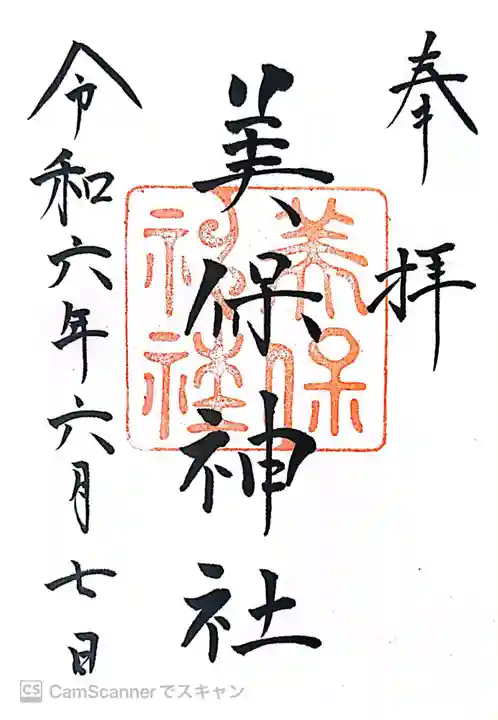 奉拝
美保神社
令和六年六月七日
美保
神社
CS CamScannerでスキャン